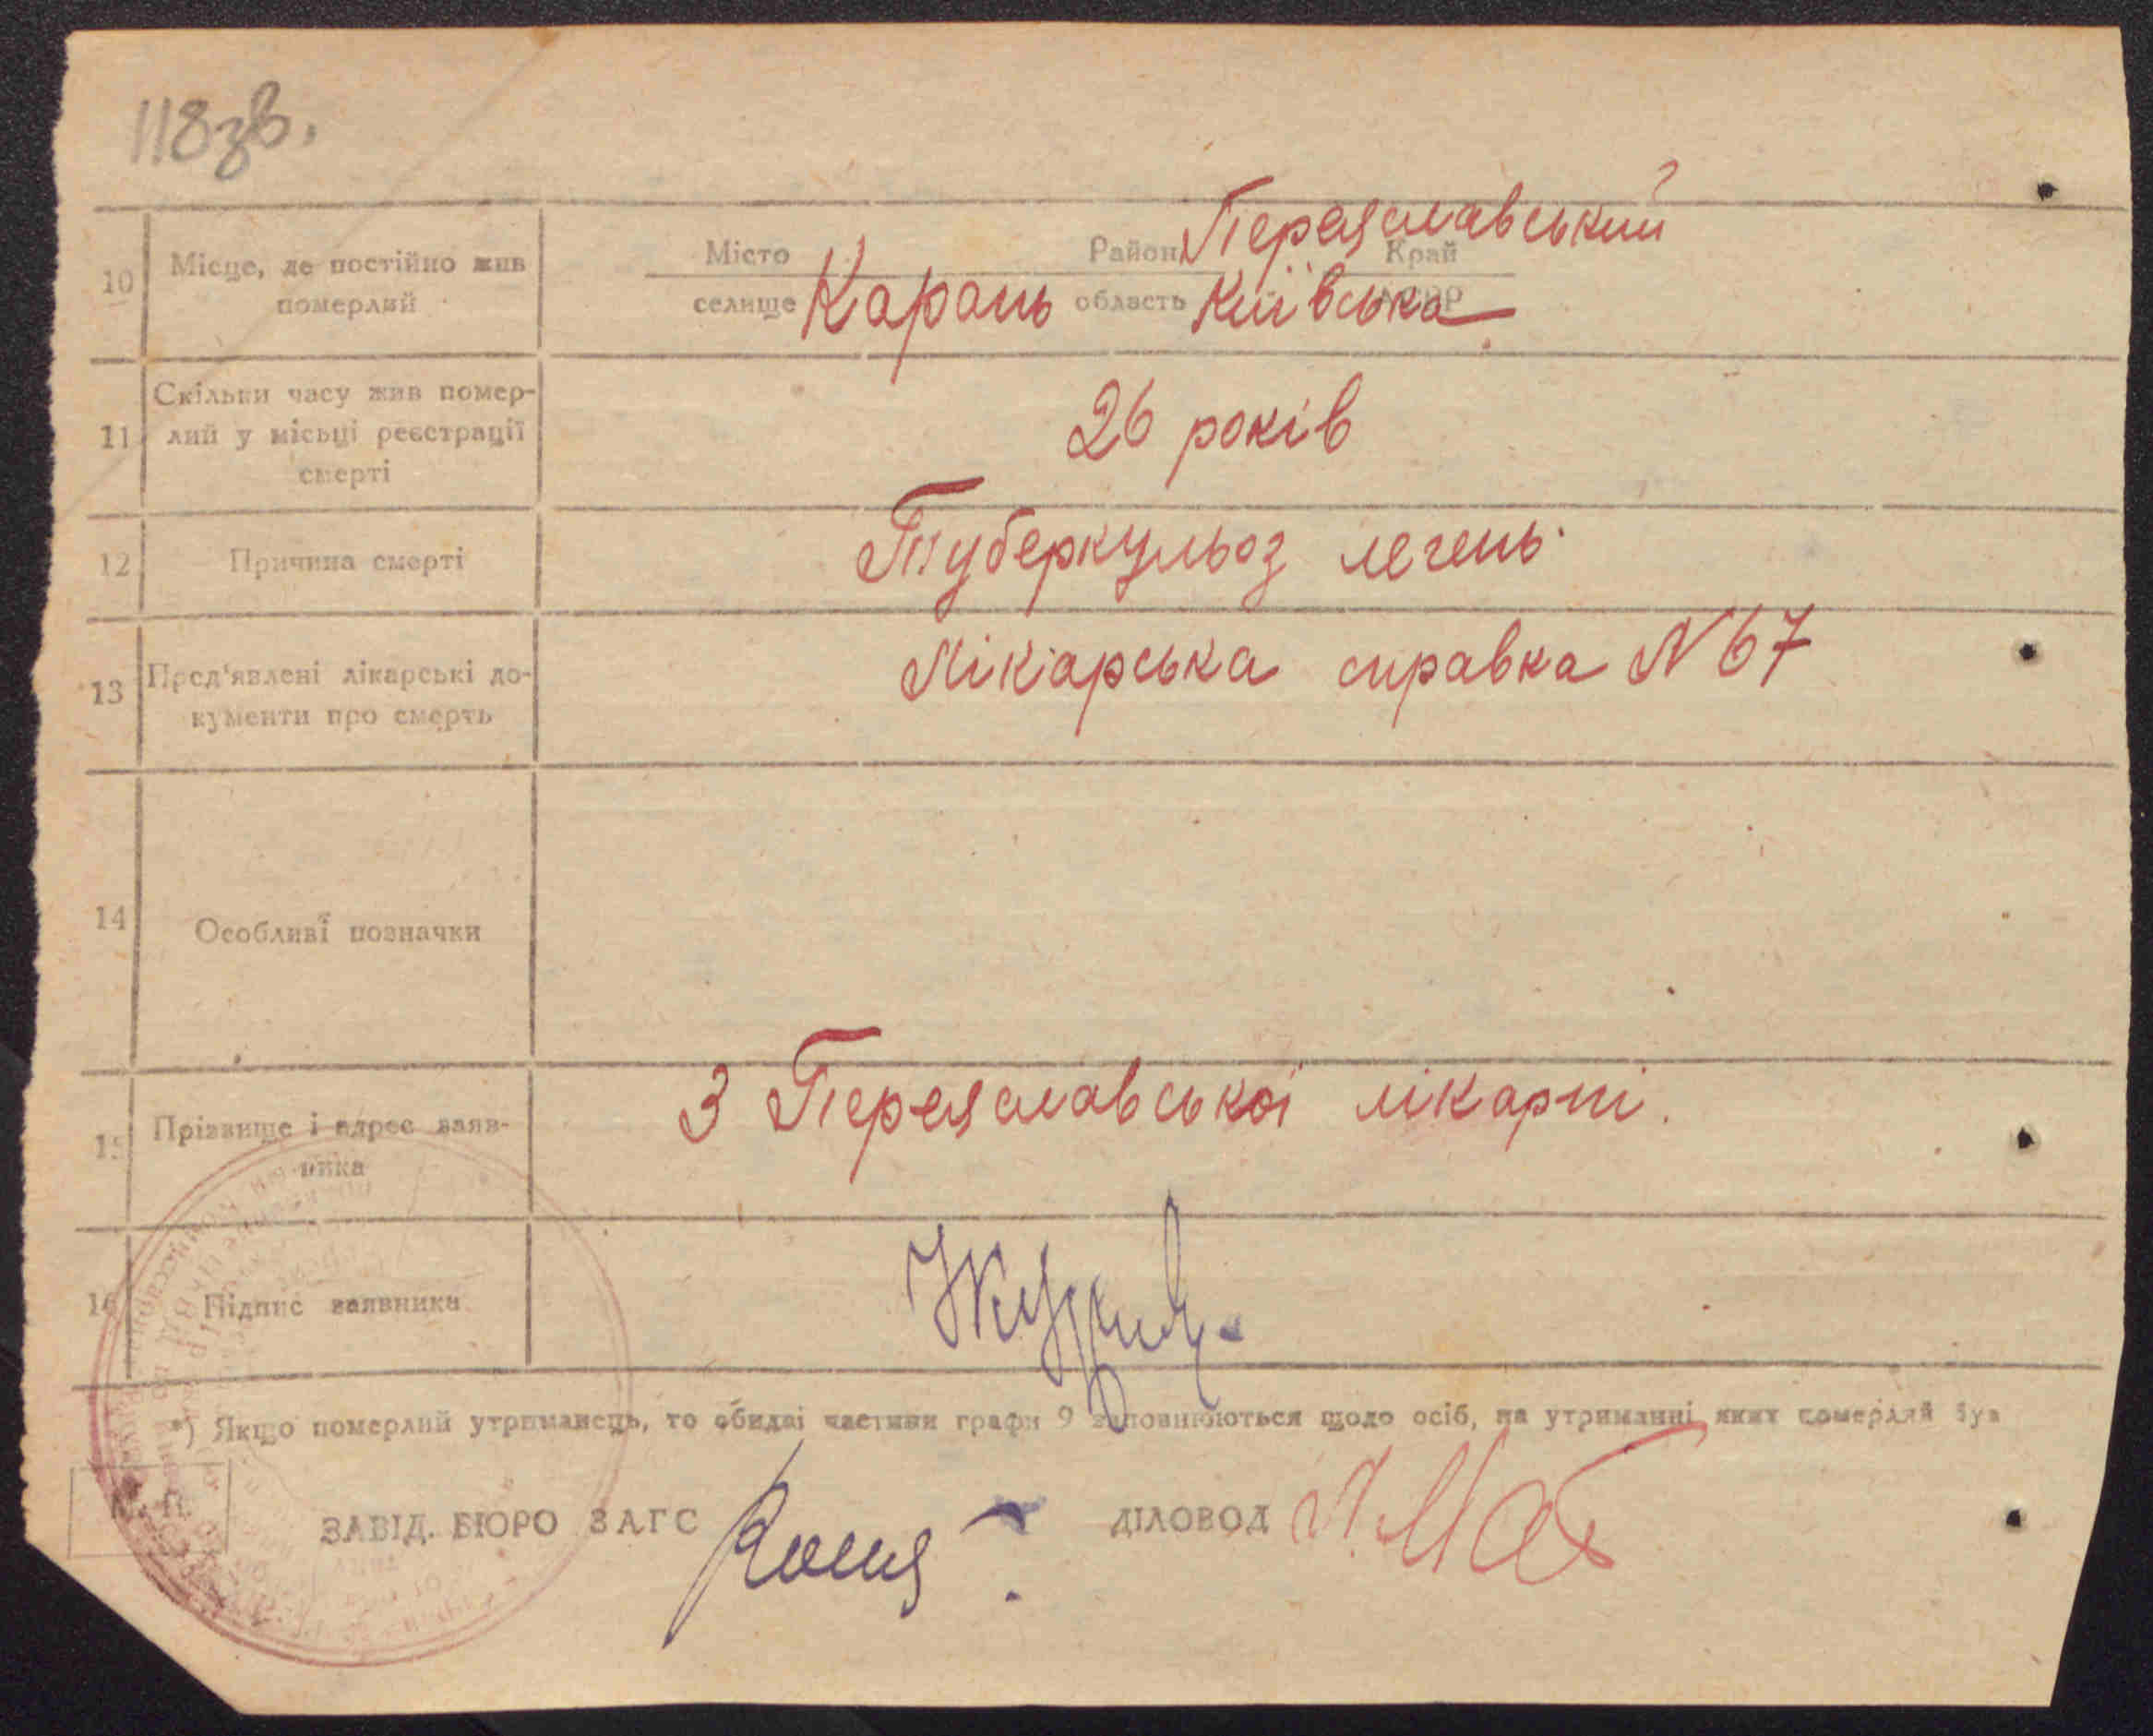 118зв.
10 Місце, де постійно жив померлий
Місто Район Переяславський Край
селище Карань область Київська АСРР
11 Скільки часу жив помер-
лий у місьці реєстрації
смерті
26 років
12 Причина смерті Туберкульоз легень.
13 Пред'явлені лікарські до-
кументи про смерть
Лікарська справка N 67
14 Особливі позначки
15 Прізвище і адрес заяв-
ника
З Переяславської лікарні.
16 Підпис заявника
*) Якщо померлий утриманець, то обидві частини графи 9 заповнюються щодо осіб, на утриманні яких померлий був
М. П.
ЗАВІД. БЮРО ЗАГС ДІЛОВОД